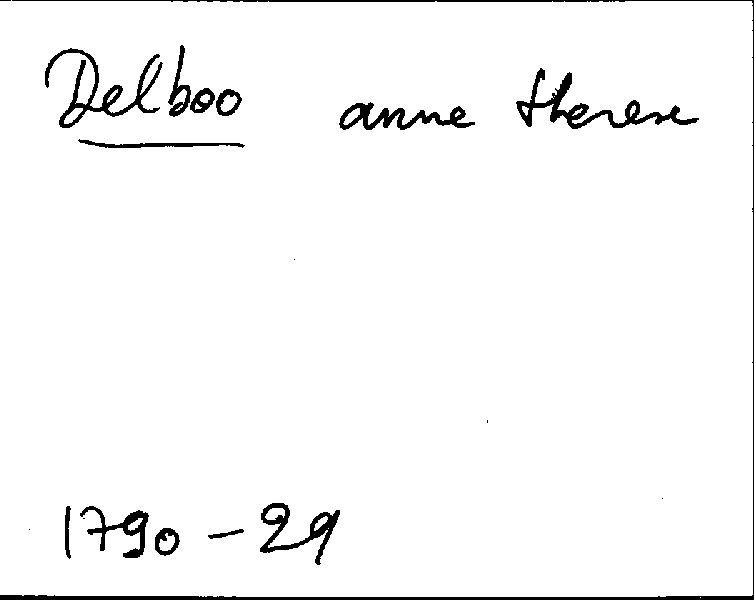 Delboo anne therese
1790 - 29